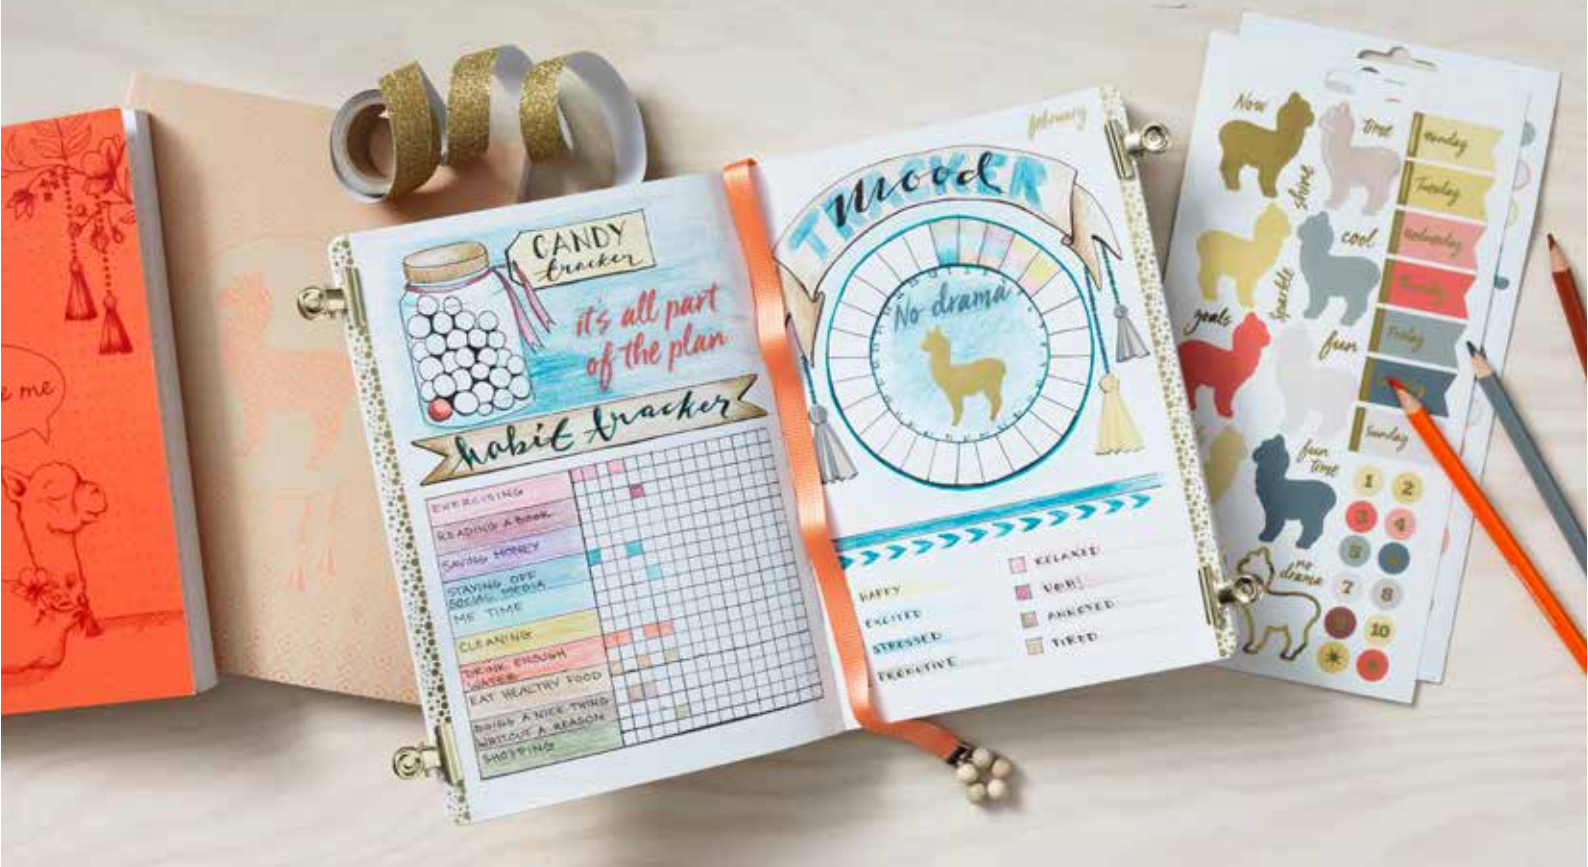 e me
CANDY
tracker
it's all part
of the plan
habit tracker
EXERCISING
READING A BOOK
SAVING MONEY
STAYING OFF
SOCIAL MEDIA
ME TIME
CLEANING
DRINK ENOUGH
WATER
EAT HEALTHY FOOD
DOING A NICE THING
WITHOUT A REASON
SHOPPING
february
mood
TRACKER
No drama
HAPPY
EXCITED
STRESSED
PRODUCTIVE
RELAXED
ANNOYED
TIRED
Now
time
shine
cool
sparkle
goals
fun
fun
time
no
drama
monday
Tuesday
Wednesday
Thursday
Friday
Sunday
1 2
3 4
5 6
7 8
9 10